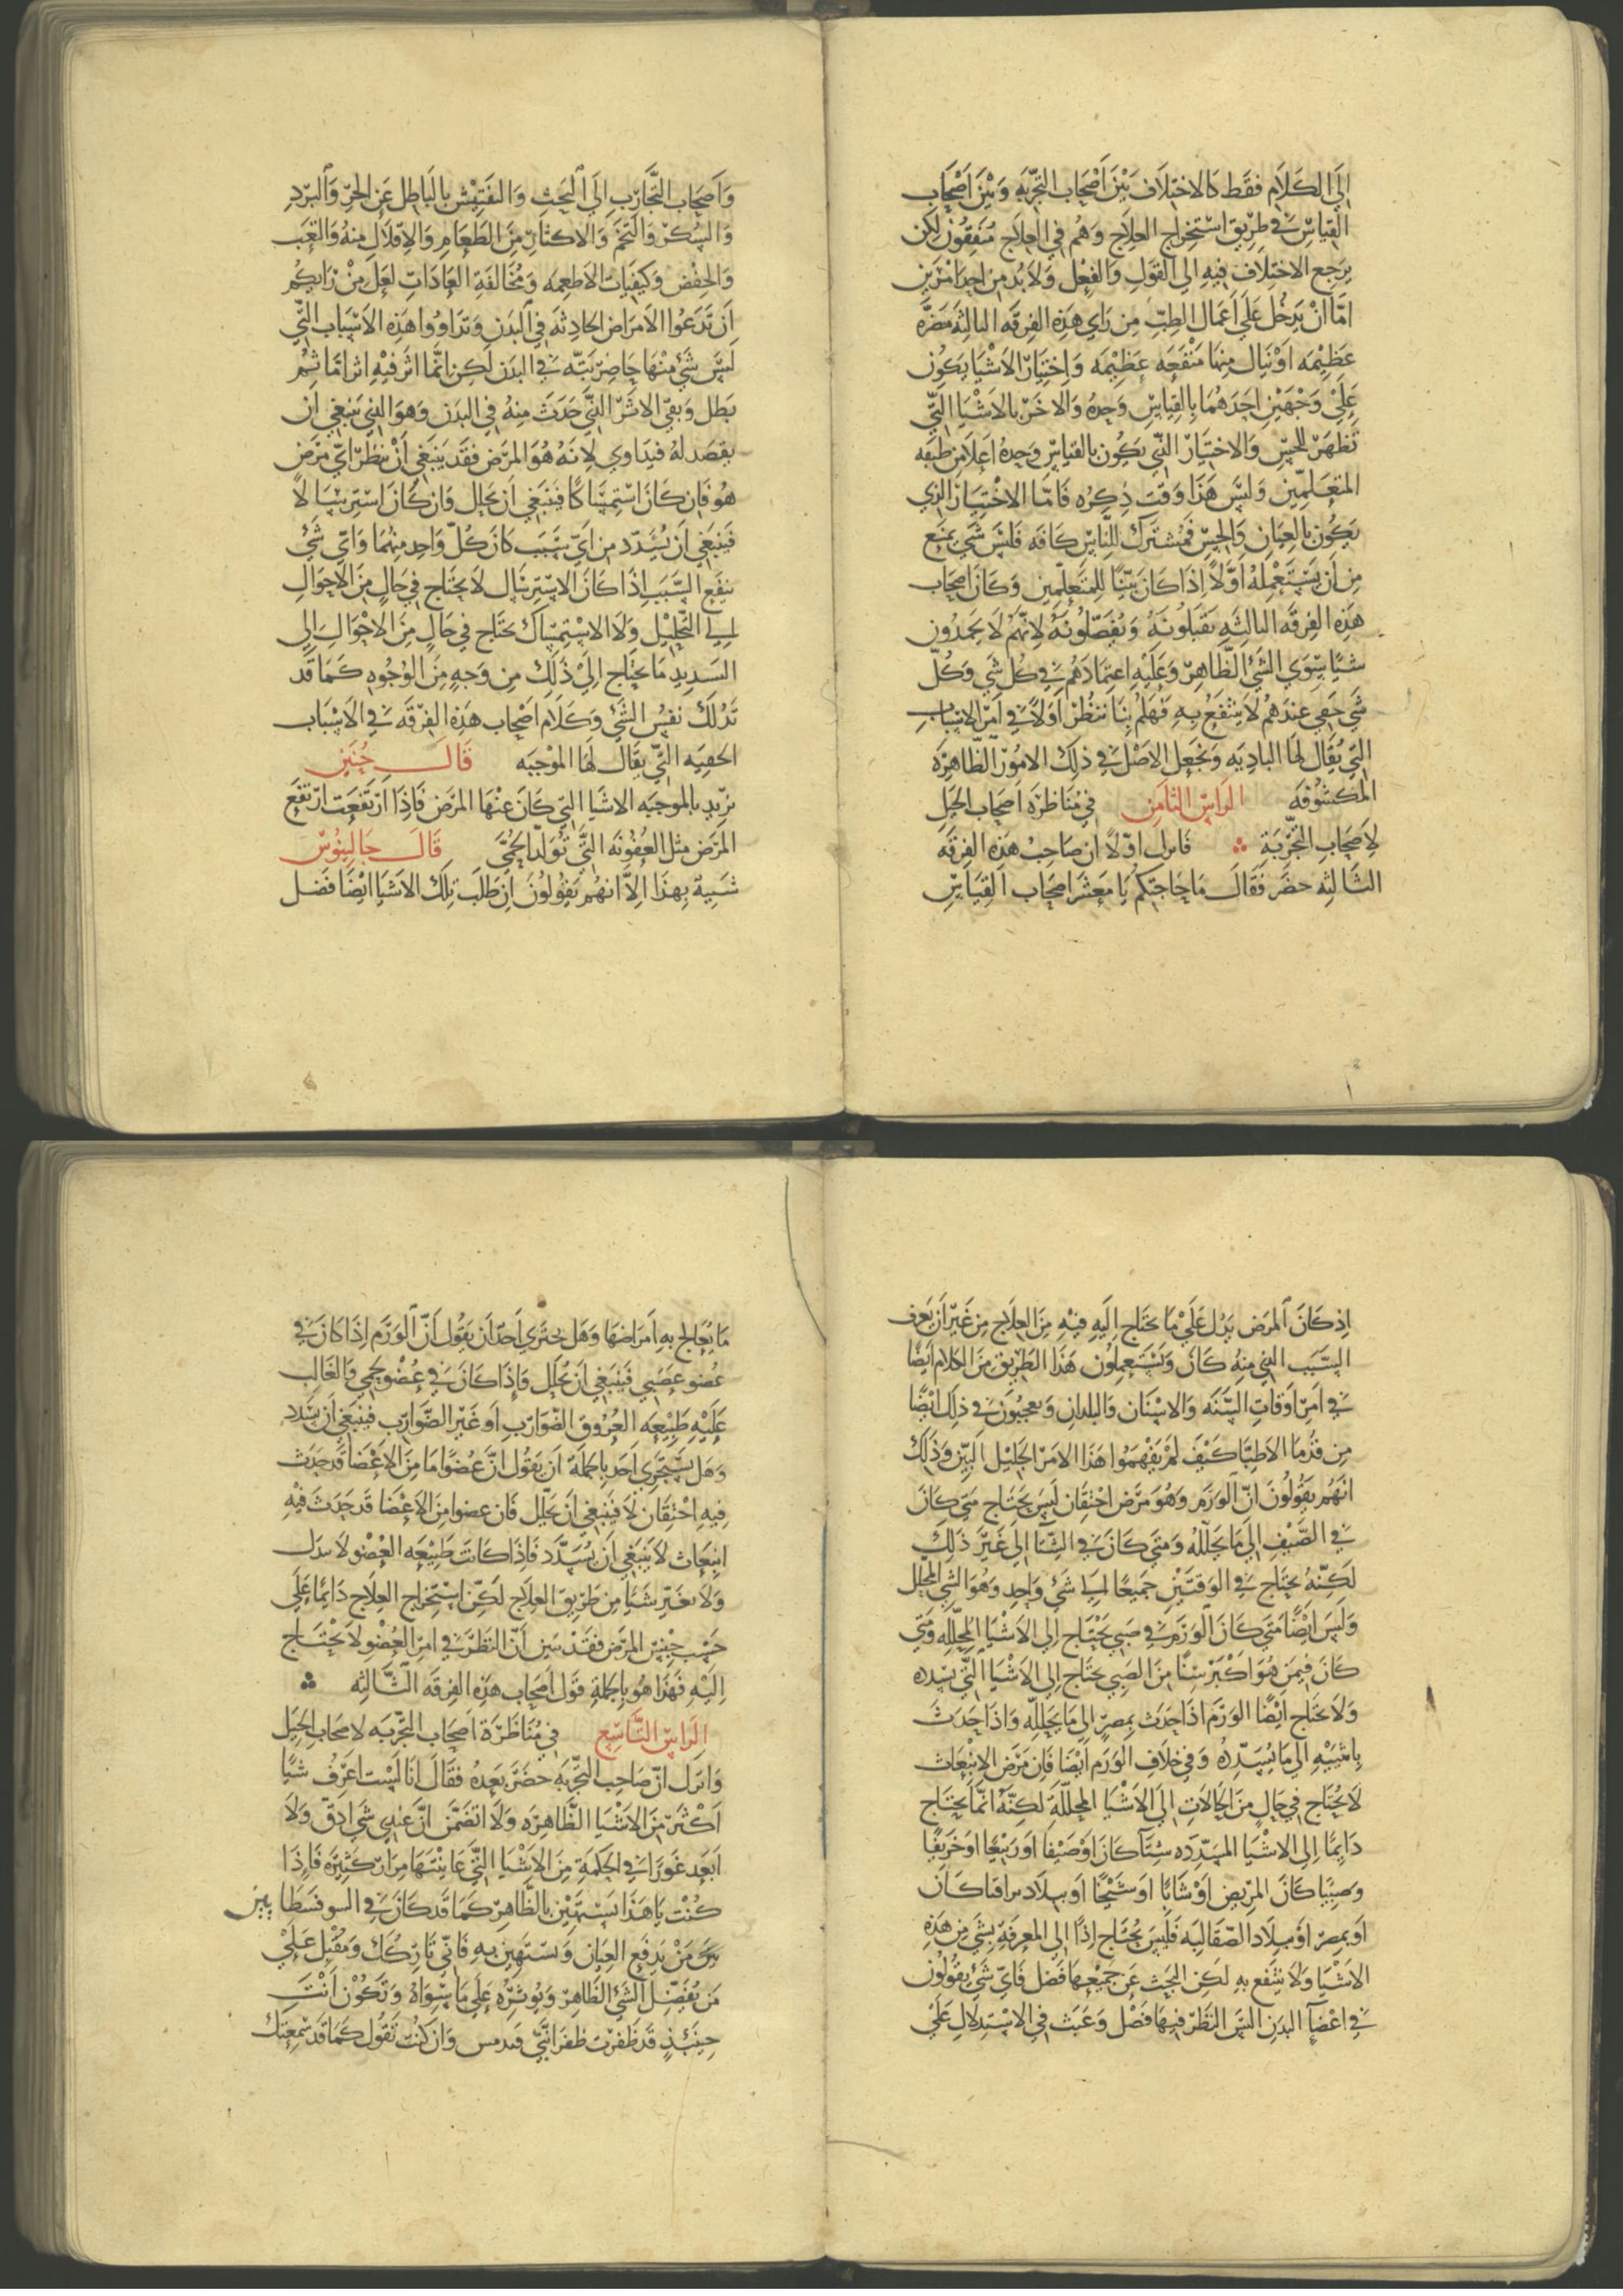 الي الكلام فقط كالاختلاف بين اصحاب التجربه وبين اصحاب
القياس في طريق استخراج العلاج وهم في العلاج متفقون لكن
يرجع الاختلاف فيه الي القول والفعل ولابد من احد امرين
اما ان يدخل علي اعمال الطب من راي هذه الفرقه الثالثه مضره
عظيمه او ينال منها منفعه عظيمه واختيار الاشيا يكون
علي وجهين احدهما بالقياس وحده والاخر بالاشيا التي
تظهر للحس والاختيار الذي يكون بالقياس وحده اعلا من طبقه
المتعلمين وليس هذا وقت ذكره فاما الاختيار الذي
يكون بالعيان والحس فمشترك للناس كافه فليس شي يمنع
من ان يستعمله اولا اذا كان بينا للمتعلمين وكان اصحاب
هذه الفرقه الثالثه يقبلونه ويفضلونه لانهم لا يحمدون
شيا سوي الشئ الظاهر وعليه اعتمادهم في كل شي وكل
شي خفي عندهم لا ينتفع به فهلم بنا ننظر اولا في امر الاسباب
التي يقال لها الباديه ونجعل الاصل في ذلك الامور الظاهره
المكشوفه الراس الثامن في مناظره اصحاب الحيل
لاصحاب التجربة فانزل اولا ان صاحب هذه الفرقه
الثالثه حضر فقال ما حاجتكم يا معشر اصحاب القياس
واصحاب التجارب الي البحث والتفتيش بالباطل عن الحر والبرد
والسكر والتخم والاكثار من الطعام والاقلال منه والتعب
والخفض وكيفيات الاطعمه ومخالفة العادات لعل من رايكم
ان تدعوا الامراض الحادثه في البدن وتداووا هذه الاسباب التي
ليس شئ منها حاضر بته في البدن لكن انما اثر فيه اثرا ما ثم
بطل وبقي الاثر الذي حدث منه في البدن وهو الذي ينبغي ان
يقصد له فيداوي لانه هو المرض فقد ينبغي ان ننظر اي مرض
هو فان كان استمساكا فينبغي ان يحلل وان كان استرسالا
فينبغي ان يسدد من اي سبب كان كل واحد منهما واي شئ
ينفع السبب اذا كان الاسترسال لا يحتاج في حال من الاحوال
الي التحليل ولا الاستمساك يحتاج في حال من الاحوال الي
السديد ما يحتاج الي ذلك من وجه من الوجوه كما قد
تدلك نفس الشئ وكلام اصحاب هذه الفرقه في الاسباب
الخفيه التي يقال لها الموجبه قال حنين
يريد بالموجبه الاشيا التي كان عنها المرض فاذا ارتفعت ارتفع
المرض مثل العفونه التي تولد الحمي قال جالينوس
شبيه بهذا الا انهم يقولون ان طلب تلك الاشيا ايضا فضل
اذ كان المرض يدل علي ما يحتاج اليه فيه من العلاج من غير ان يعرف
السبب الذي منه كان ويستعملون هذا الطريق من الكلام ايضا
في امر اوقات السنه والاسنان والبلدان ويعجبون في ذلك ايضا
من قدما الاطبا كيف لم يفهموا هذا الامر الجليل البين وذلك
انهم يقولون ان الورم وهو مرض احتقان ليس يحتاج متي كان
في الصيف الي ما يحلله ومتي كان في الشتا الي غير ذلك
لكنه يحتاج في الوقتين جميعا الي شئ واحد وهو الشي المحلل
وليس ايضا متي كان الورم في صبي يحتاج الي الاشيا المحلله ومتي
كان فيمن هو اكبر سنا من الصبي يحتاج الي الاشيا التي تسدد
ولا يحتاج ايضا الورم اذا حدث بمصر الي ما يحلله واذا حدث
باثينيه الي ما يسدده وفي خلاف الورم ايضا فان مرض الانبعاث
لا يحتاج في حال من الحالات الي الاشيا المحللة لكنه انما يحتاج
دايما الي الاشيا المسدده شتا كان او صيفا او ربيعا او خريفا
وصبيا كان المريض او شابا او شيخا او ببلاد براقا كان
او بمصر او ببلاد الصقالبه فليس يحتاج اذا الي المعرفة بشي من هذه
الاشيا ولا ينتفع به لكن البحث عن جميعها فضل فاي شئ يقولون
في اعضآ البدن اليس النظر فيها فضل وعبث في الاستدلال علي
ما يعالج به امراضها وهل يجتري احد ان يقول ان الورم اذا كان في
عضو عصبي فينبغي ان يحلل واذا كان في عضو لحمي والغالب
عليه طبيعه العروق الضوارب او غير الضوارب فينبغي ان يسدد
وهل يستجري احد بالجملة ان يقول ان عضوا ما من الاعضا قد حدث
فيه احتقان لا فينبغي ان يحلل فان عضوا من الاعضا قد حدث فيه
انبعاث لا ينبغي ان يسدد فاذا كانت طبيعه العضو لا تبدل
ولا تغير شيا من طريق العلاج لكن استخراج العلاج دايما علي
حسب جنس المرض فقد تبين ان النظر في امر العضو لا يحتاج
اليه فهذا هو بالجملة قول اصحاب هذه الفرقه الثالثه
الراس التاسع في مناظرة اصحاب التجربه لاصحاب الحيل
وانزل ان صاحب التجربه حضر بعده فقال انا لست اعرف شيا
اكثر من الاشيا الظاهره ولا اتضمن ان عندي شي ادق ولا
ابعد غورا في الحكمة من الاشيا التي عاينتها مرارا كثيره فاذا
كنت يا هذا تستهين بالظاهر كما قد كان في السوفسطايين
من يدفع العيان ويستهين به فاني تاركك ومقبل علي
من يفضل الشي الظاهر ويوثره علي ما سواه وتكون انت
حينئذ قد ظفرت ظفر وان كنت تقول كما قد سمعتك